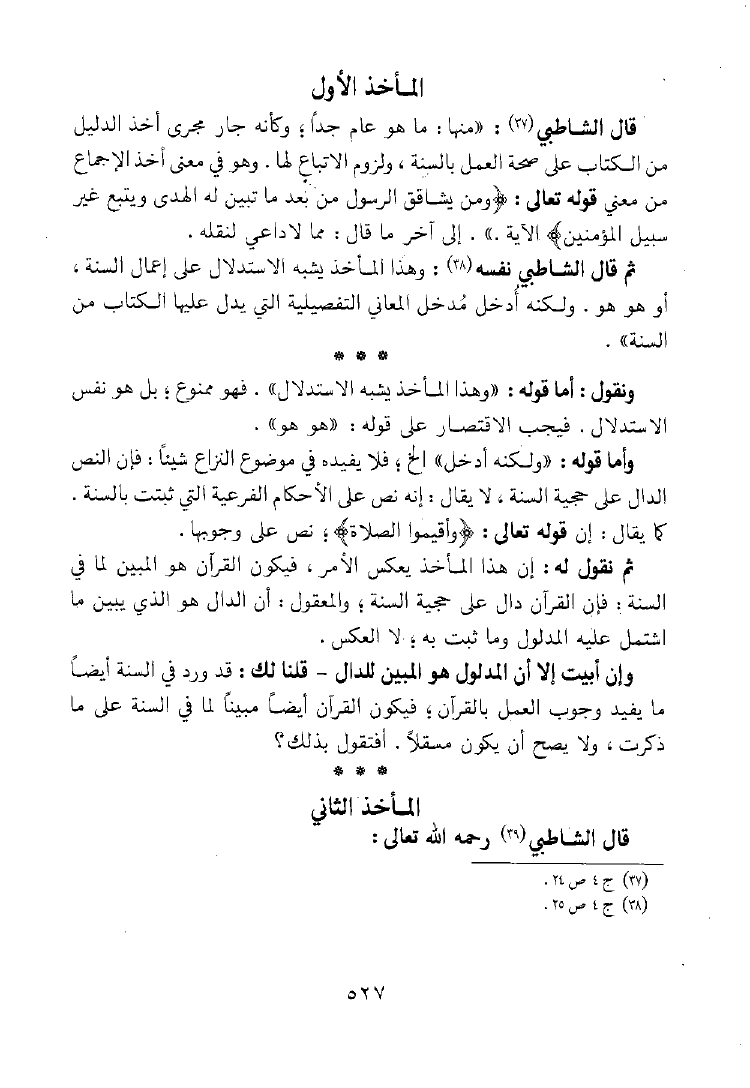 المأخذ الأول
قال الشاطبي (٣٧) : «منها : ما هو عام جداً ؛ وكأنه جار مجرى أخذ الدليل
من الكتاب على صحة العمل بالسنة ، ولزوم الاتباع لها . وهو في معنى أخذ الإجماع
من معني قوله تعالى : ﴿ومن يشاقق الرسول من بعد ما تبين له الهدى ويتبع غير
سبيل المؤمنين﴾ الآية .» . إلى آخر ما قال : مما لاداعي لنقله .
ثم قال الشاطبي نفسه (٣٨) : وهذا المأخذ يشبه الاستدلال على إعمال السنة ،
أو هو هو . ولكنه أُدخل مُدخل المعاني التفصيلية التي يدل عليها الكتاب من
السنة» .
* * *
ونقول : أما قوله : «وهذا المأخذ يشبه الاستدلال» . فهو ممنوع ؛ بل هو نفس
الاستدلال . فيجب الاقتصار على قوله : «هو هو» .
وأما قوله : «ولكنه أدخل» الخ ؛ فلا يفيده في موضوع النزاع شيئاً : فإن النص
الدال على حجية السنة ، لا يقال : إنه نص على الأحكام الفرعية التي ثبتت بالسنة .
كما يقال : إن قوله تعالى : ﴿وأقيموا الصلاة﴾ ؛ نص على وجوبها .
ثم نقول له : إن هذا المأخذ يعكس الأمر ، فيكون القرآن هو المبين لما في
السنة : فإن القرآن دال على حجية السنة ؛ والمعقول : أن الدال هو الذي يبين ما
اشتمل عليه المدلول وما ثبت به ؛ لا العكس .
وإن أبيت إلا أن المدلول هو المبين للدال – قلنا لك : قد ورد في السنة أيضاً
ما يفيد وجوب العمل بالقرآن ؛ فيكون القرآن أيضاً مبيناً لما في السنة على ما
ذكرت ، ولا يصح أن يكون مسقلاً . أفتقول بذلك ؟
* * *
المأخذ الثاني
قال الشاطبي (٣٩) رحمه الله تعالى :
(٣٧) ج ٤ ص ٢٤ .
(٣٨) ج ٤ ص ٢٥ .
٥٢٧